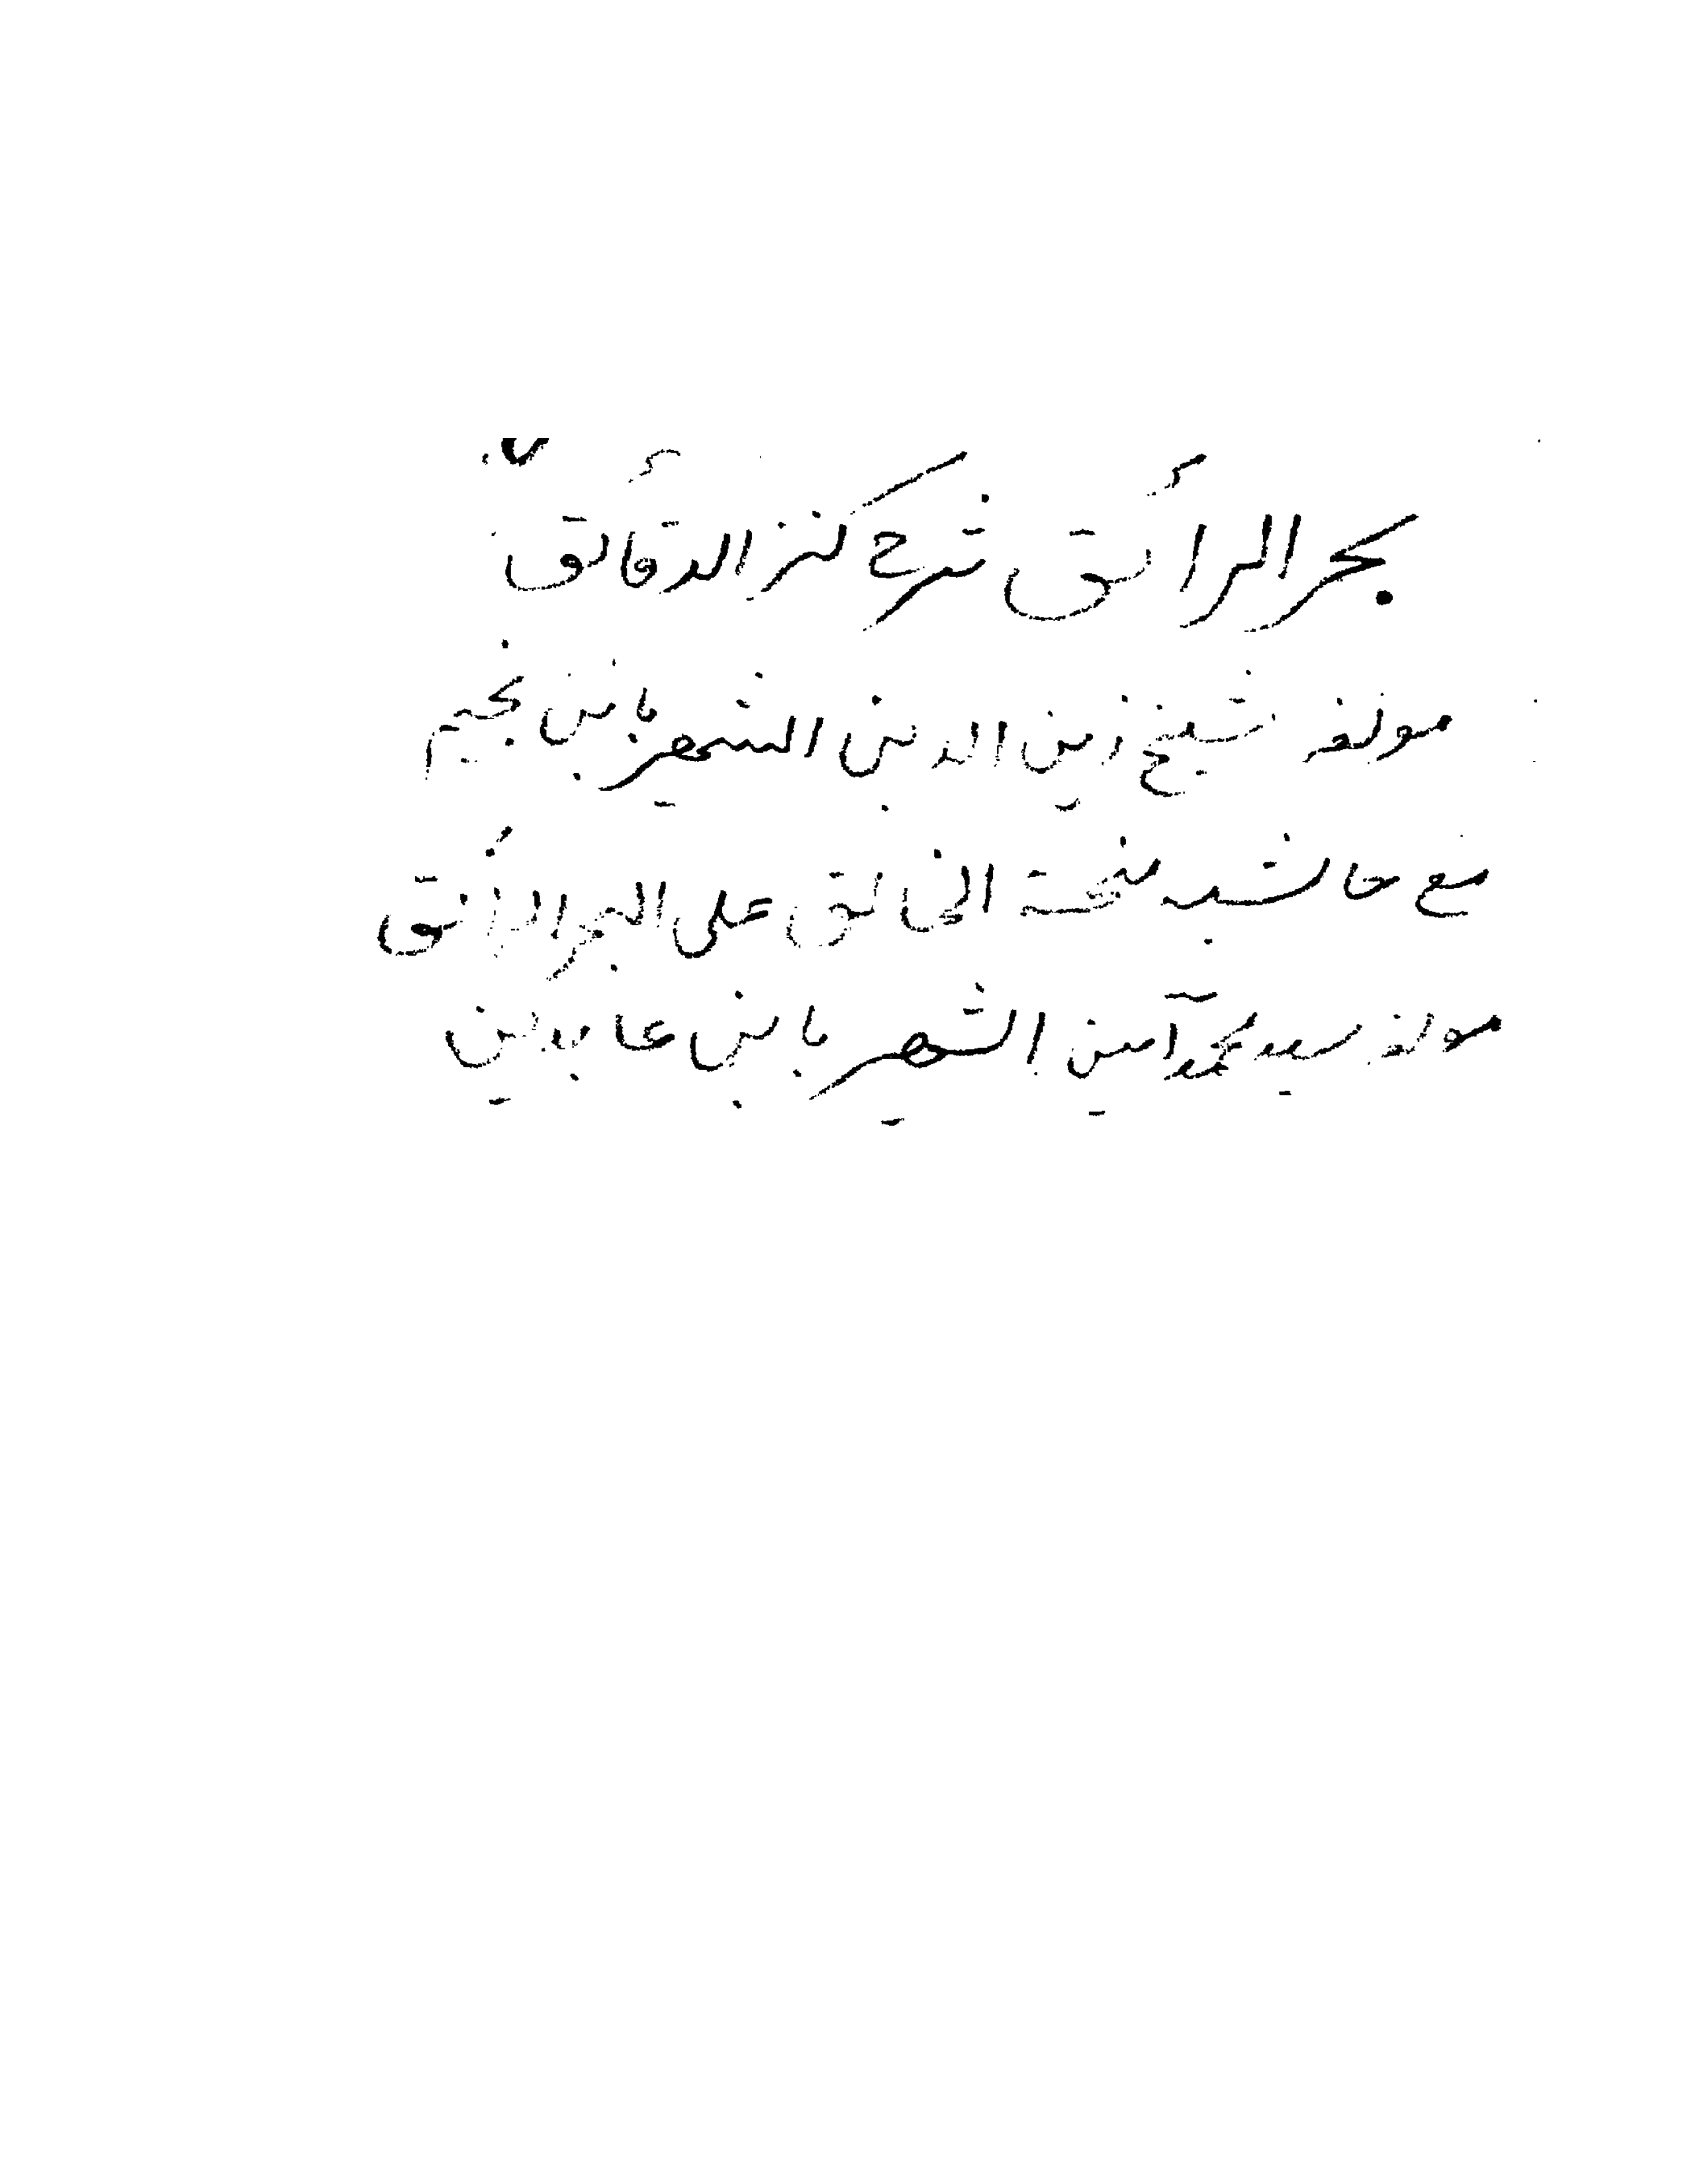 بحر الرائق شرح كنز الدقائق
مولفه شيخ زين الدين الشهير بابن نجيم
مع حاشيه منحة الخالق على البحر الرائق
مولفه سيد محمد آمين الشهير بابن عابدين